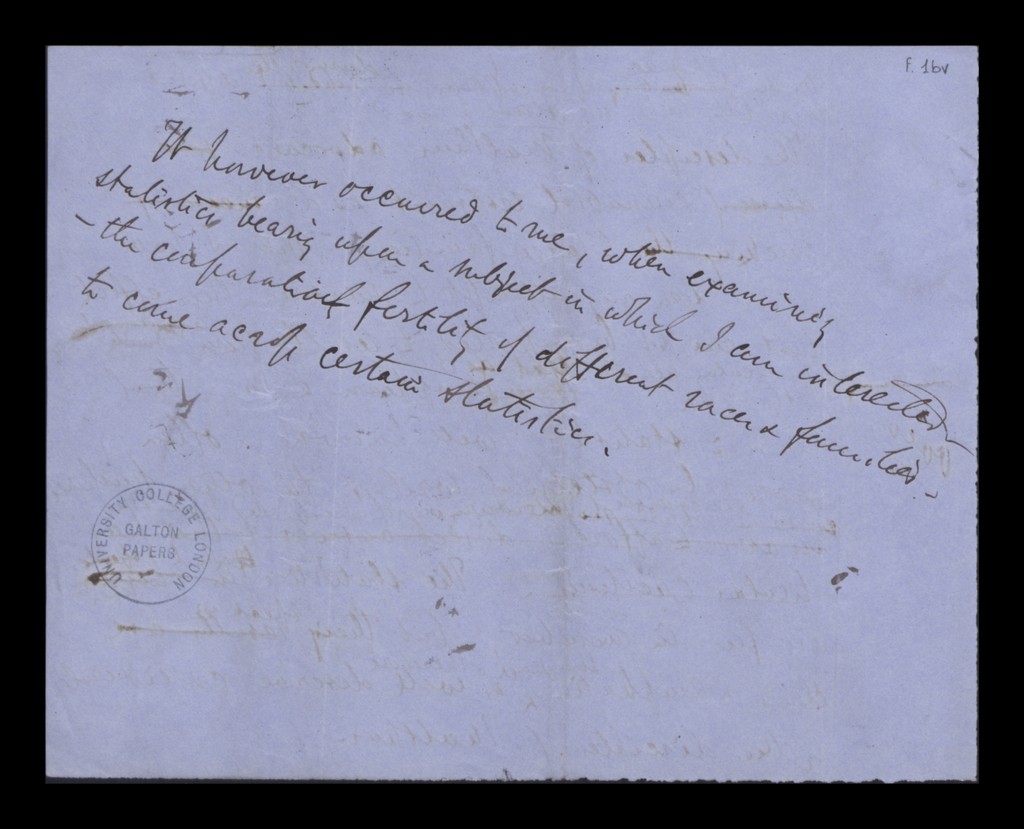 f. 1bv
It however occurred to me, when examining
statistics bearing upon a subject in which I am interested
– the comparative fertility of different races & families –
to come across certain statistics.
UNIVERSITY COLLEGE LONDON
GALTON
PAPERS